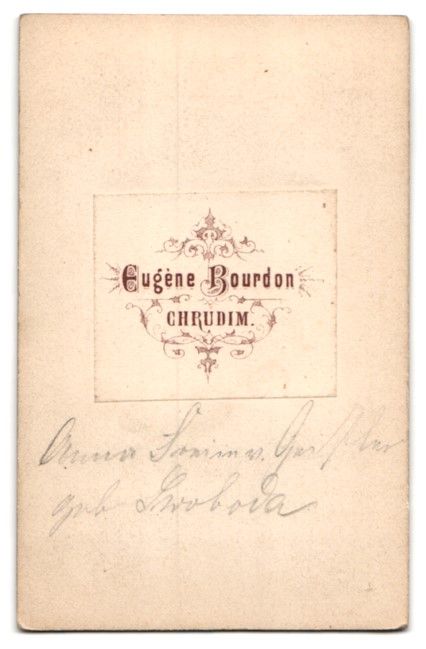 Eugène Bourdon
CHRUDIM.
Anna Freiin v. Geißler
geb Swoboda